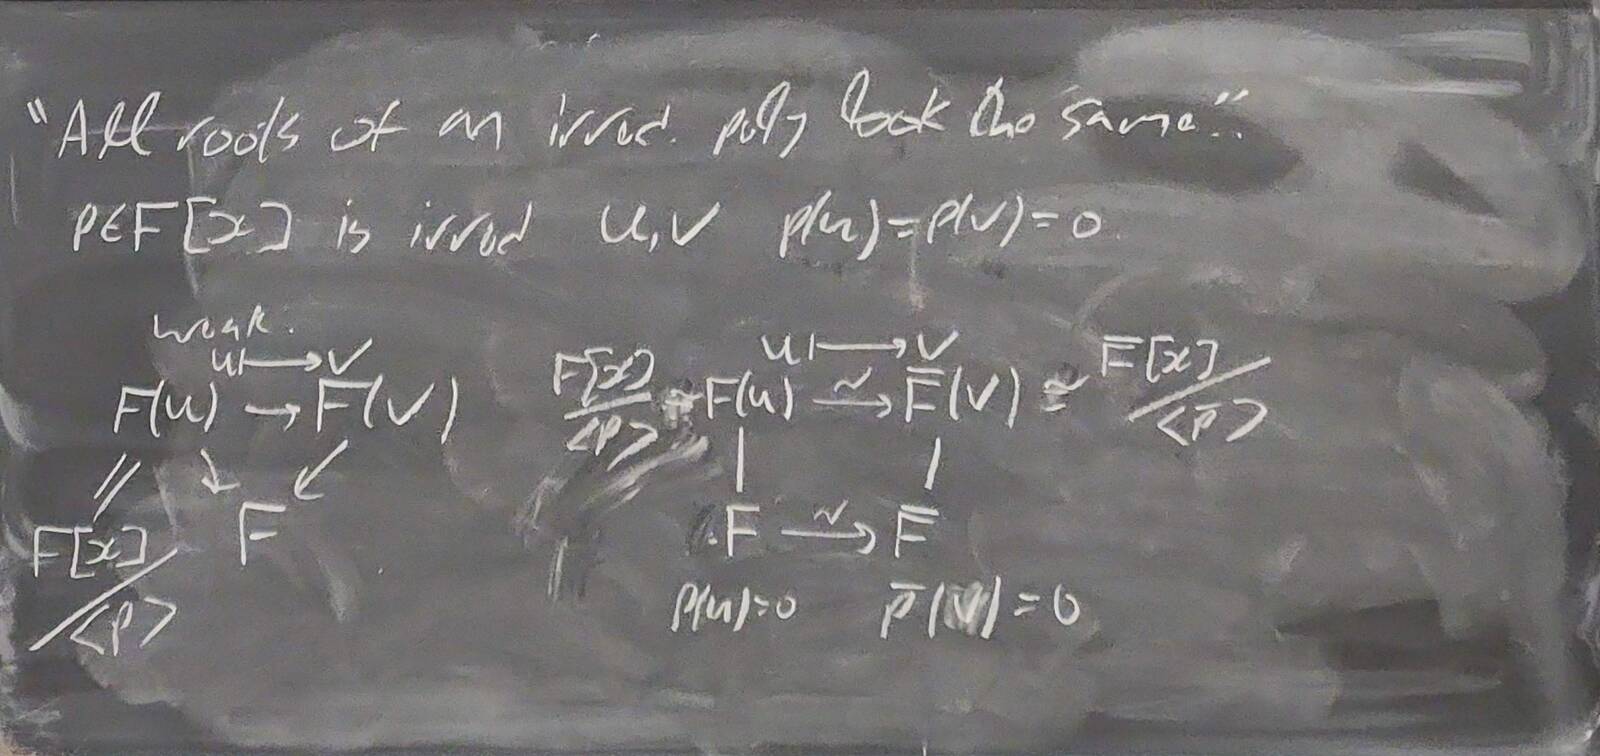 "All roots of an irred. poly look the same".
p∈F[x] is irred u,v p(u)=p(v)=0.
weak:
u↦v
F(u) → F(v)
F[x]/<p> F
u↦v
F[x]/<p> ≅ F(u) ~→ F̄(v) ≅ F̄[x]/<p̄>
F ~→ F̄
p(u)=0 p̄(v)=0